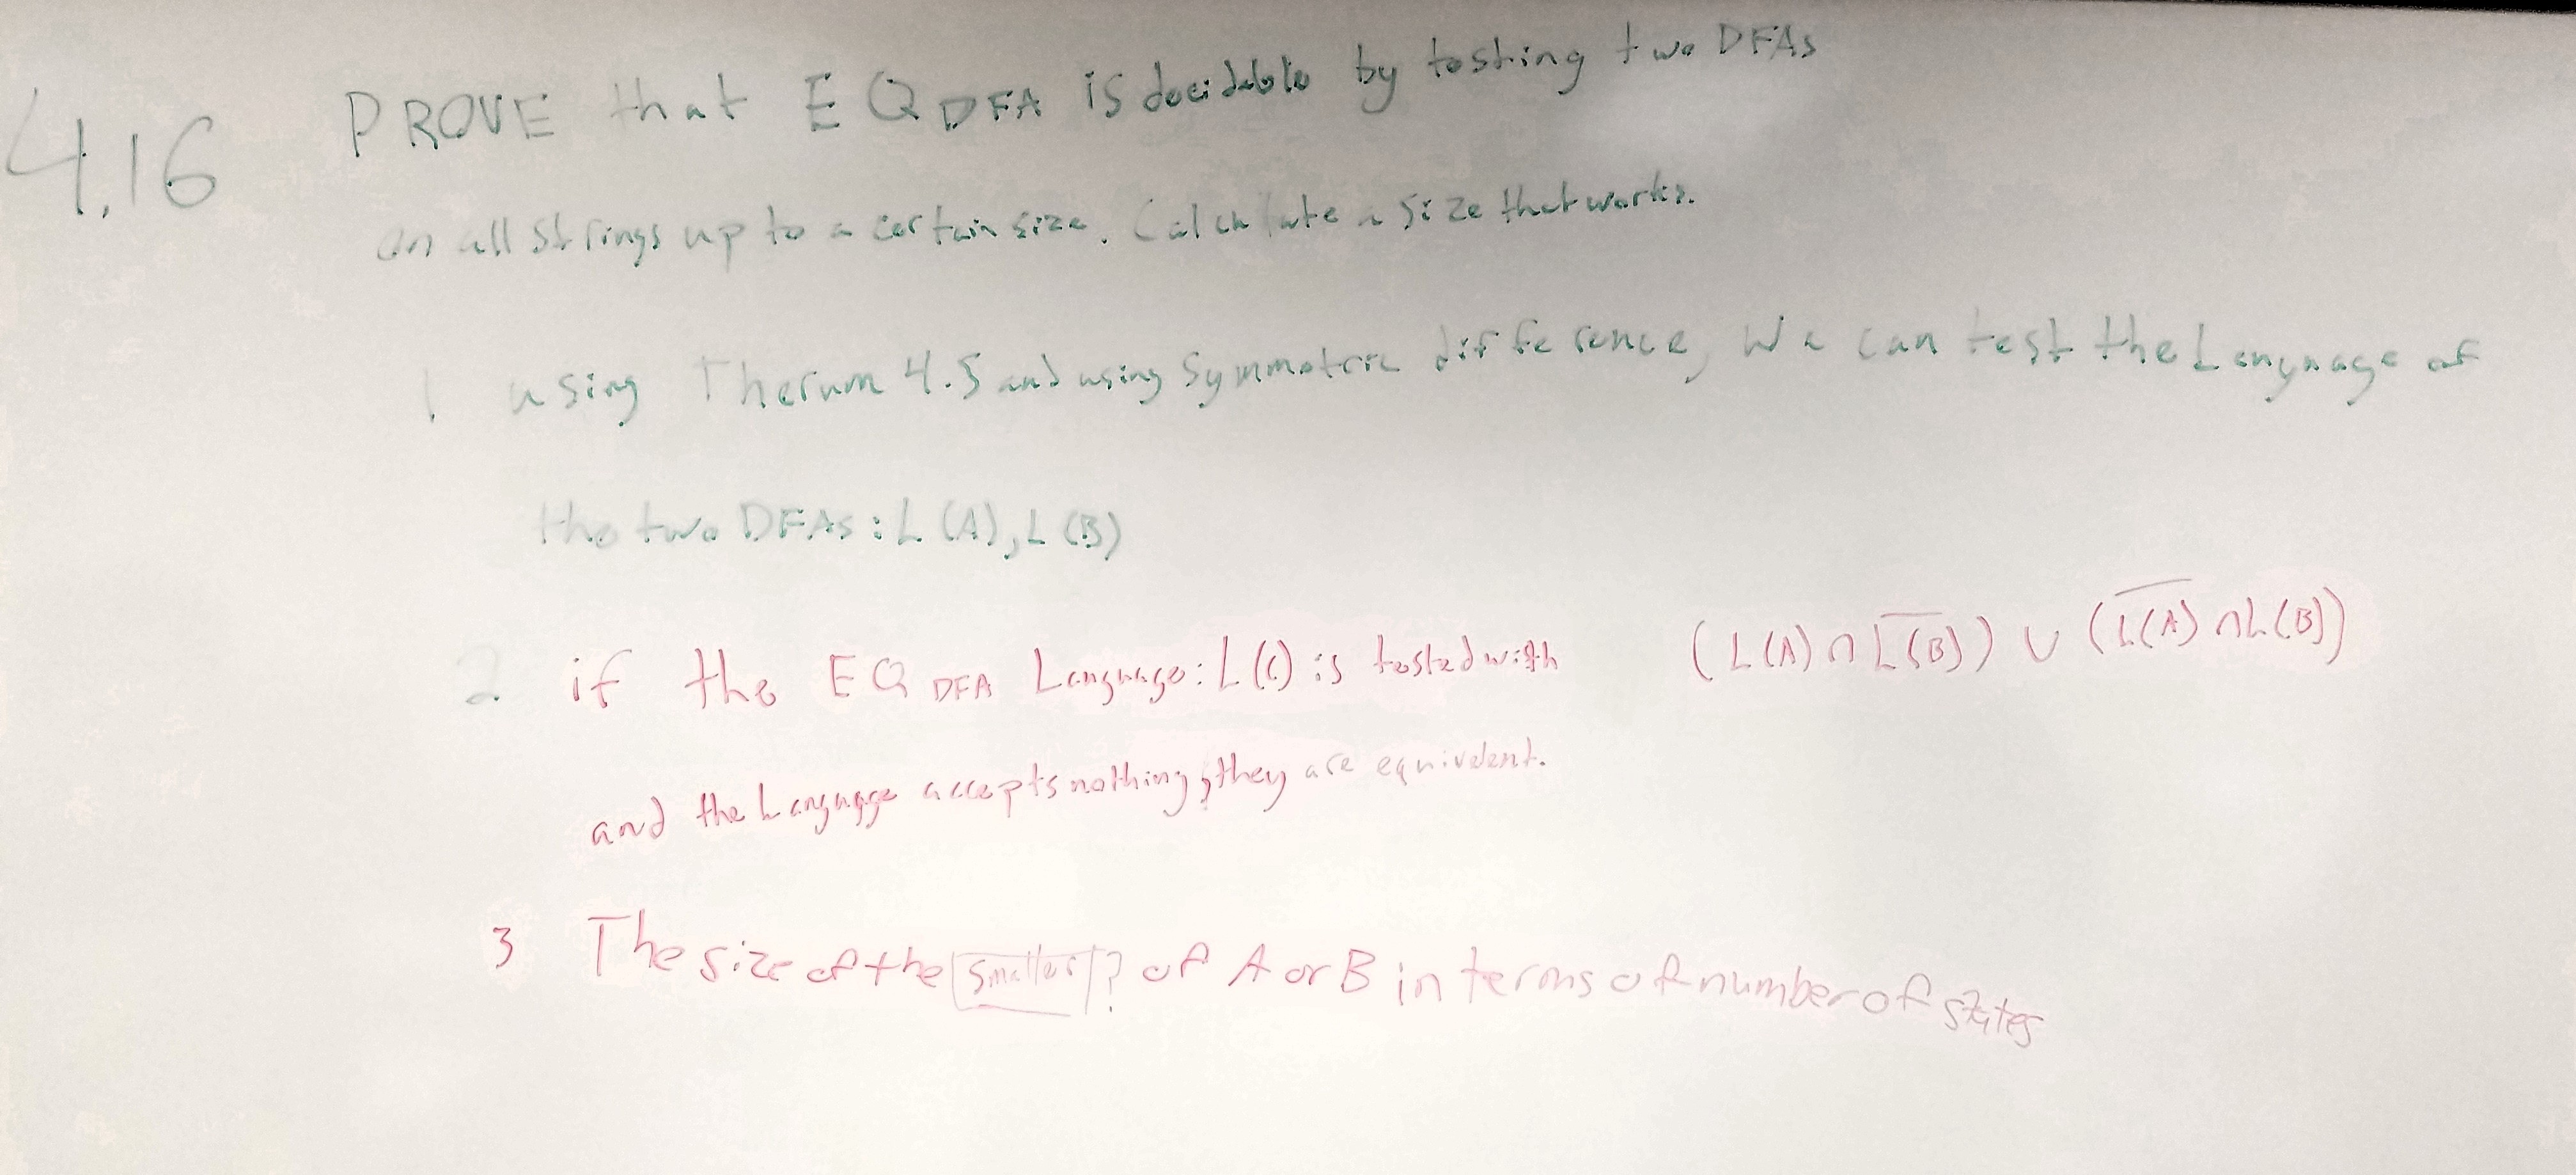 4.16 PROVE that EQ DFA is decidable by testing two DFAs
on all strings up to a certain size. Calculate a size that works.
1 using Therum 4.5 and using Symmetric difference, We can test the Language of
the two DFAs: L(A), L(B)
2 if the EQ DFA Language: L(C) is tested with (L(A) ∩ L̅(̅B̅)̅) ∪ (L̅(̅A̅)̅ ∩ L(B))
and the Language accepts nothing, they are equivalent.
3 The size of the smaller? of A or B in terms of number of states